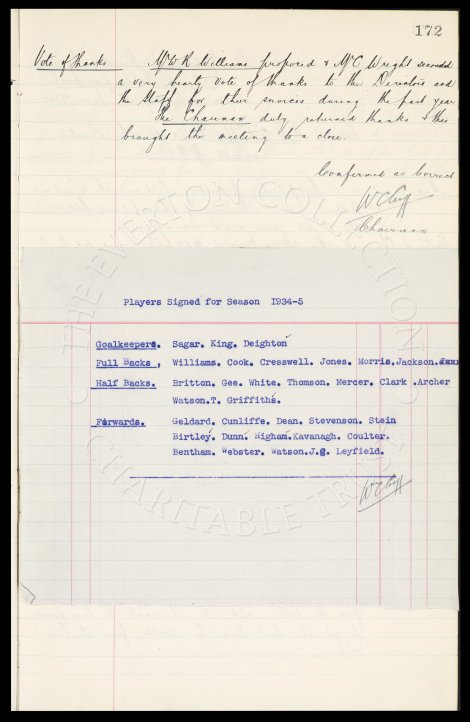 172
Vote of Thanks Mr W R Williams proposed & Mr C Wright seconded
a very hearty vote of thanks to the Directors and
the Staff for their services during the past year
The Chairman duly returned thanks & then
brought the meeting to a close.
Confirmed as Correct
W C Cuff
Chairman
THE EVERTON COLLECTION
CHARITABLE TRUST
Players Signed for Season 1934-5
Goalkeepers. Sagar. King. Deighton
Full Backs, Williams. Cook. Cresswell. Jones. Morris.Jackson.
Half Backs. Britton. Gee. White. Thomson. Mercer. Clark .Archer
Watson.T. Griffiths.
Forwards. Geldard. Cunliffe. Dean. Stevenson. Stein
Birtley. Dunn. Higham.Kavanagh. Coulter.
Bentham. Webster. Watson.J.g. Leyfield.
W C Cuff